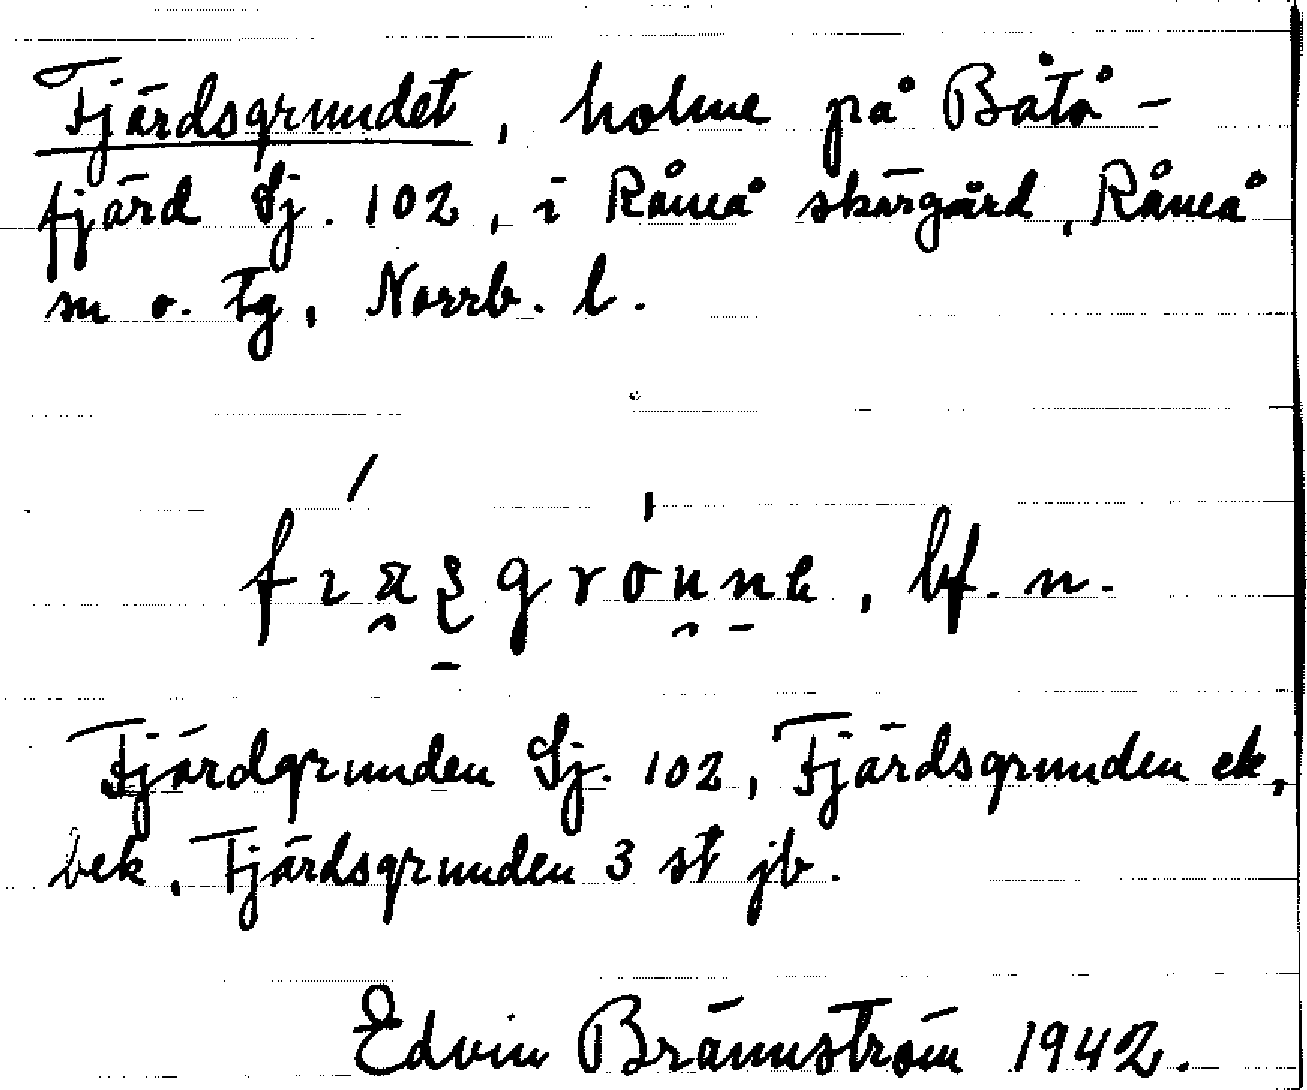 Fjärdsgrundet, holme på Båtö-
fjärd Sj. 102, i Råneå skärgård, Råneå
sn o. tg, Norrb. l.
bf. n.
Fjärdgrunden Sj. 102, Fjärdsgrunden ek,
bek, Fjärdsgrunden 3 st jb.
Edvin Brännström 1942.